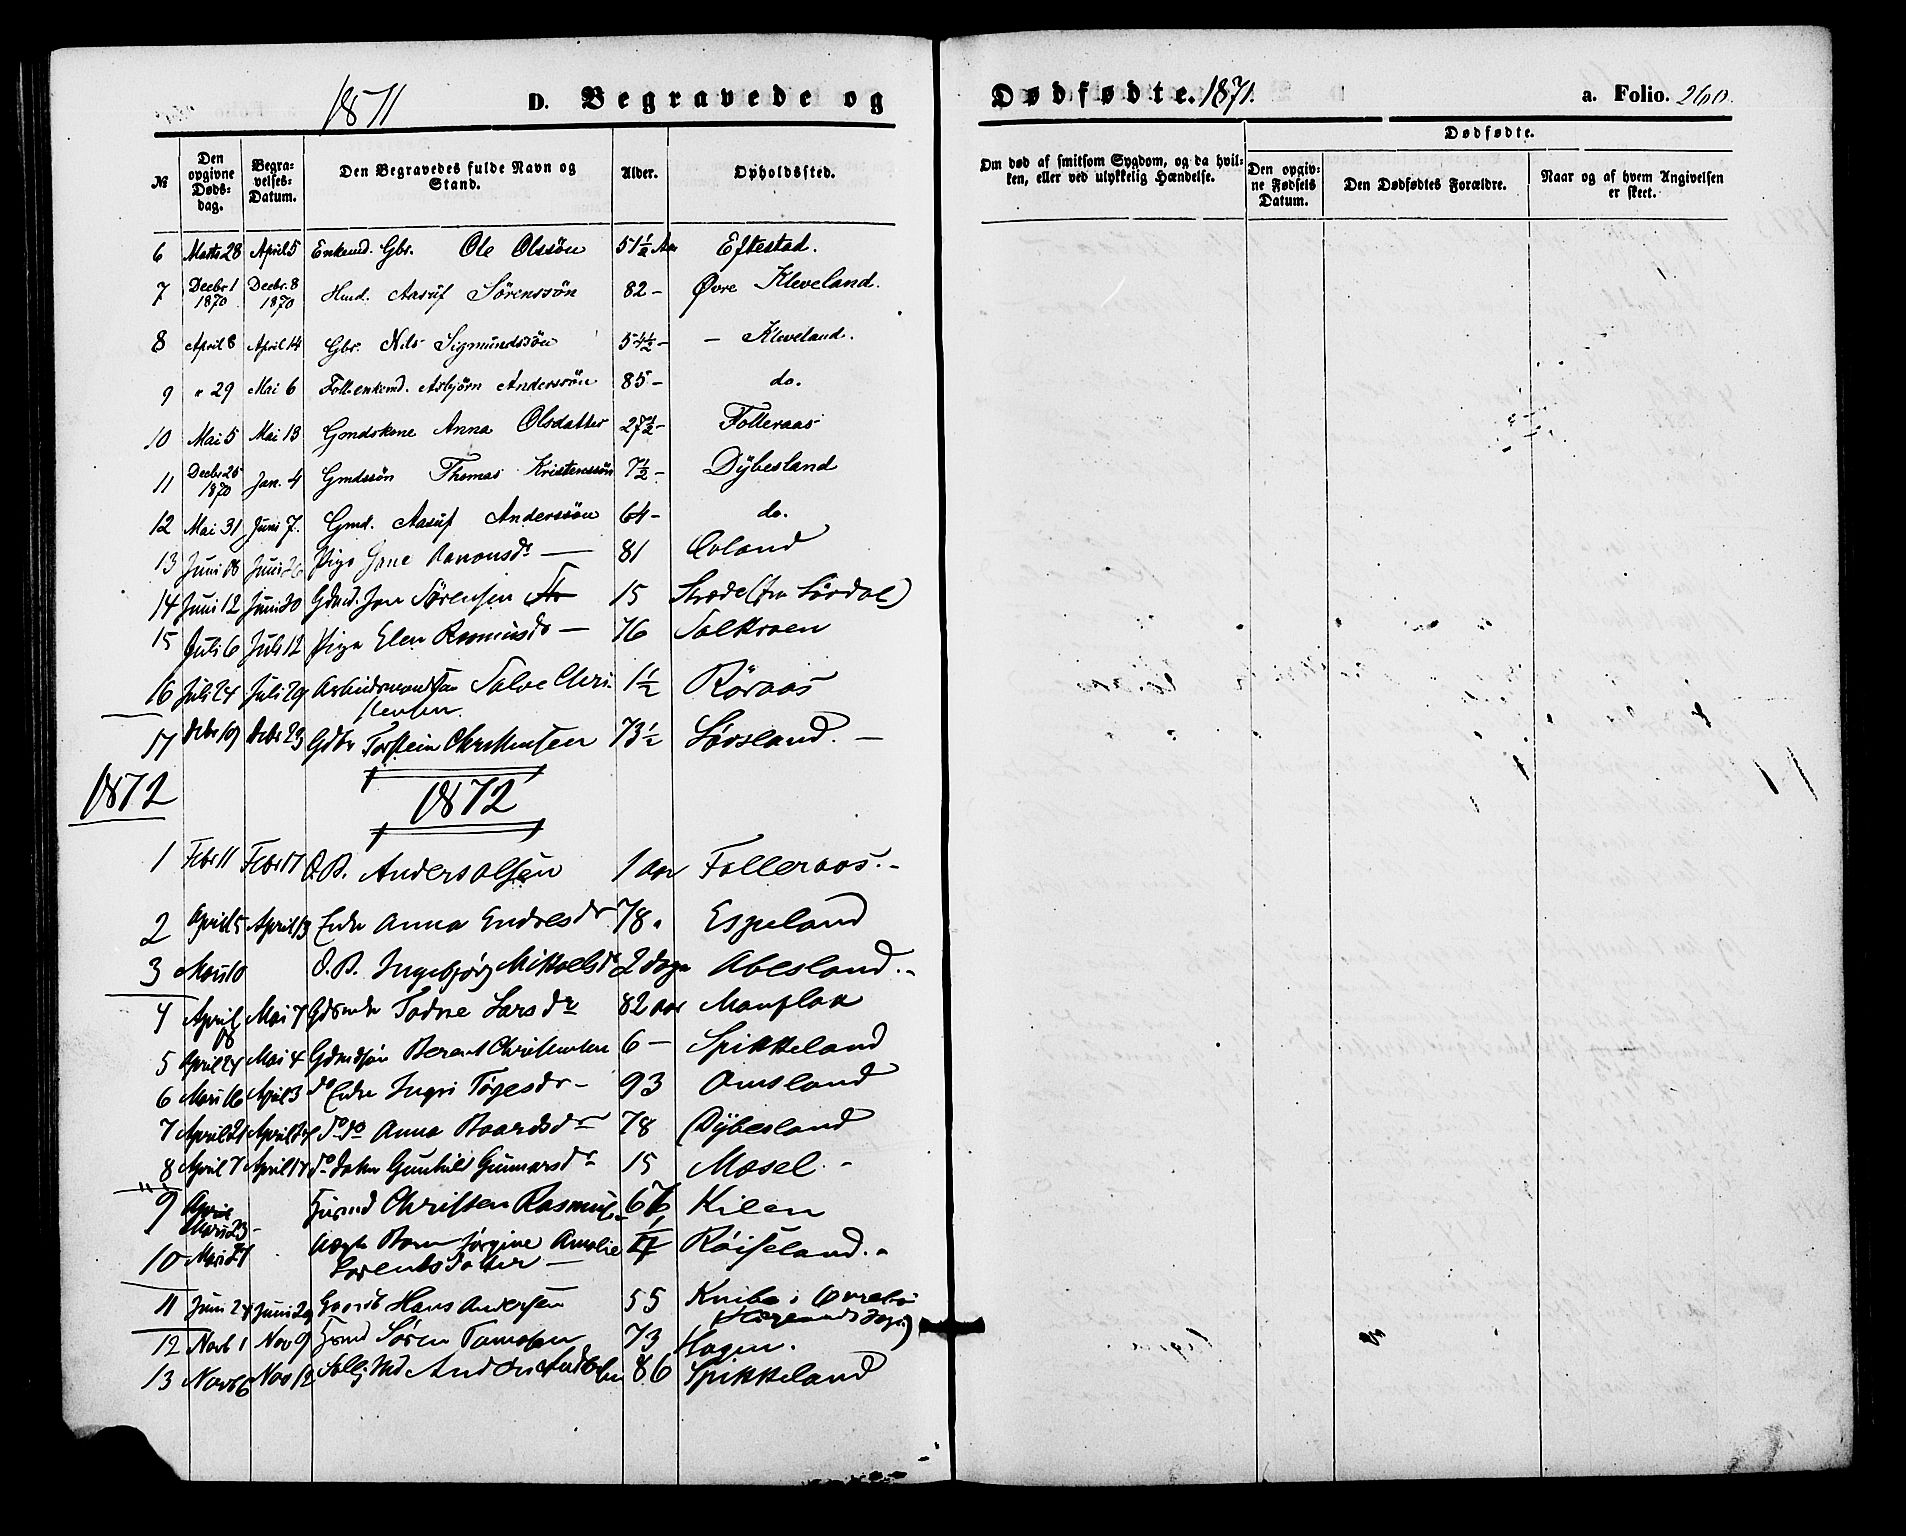 1871 D. Begravede og
Dødfødte. 1871. a. Folio. 260.
№ Den opgivne Døds-dag. Begra-velses-Datum. Den Begravedes fulde Navn og Stand. Alder. Opholdssted.
Om død af smitsom Sygdom, og da hvil-ken, eller ved ulykkelig Hændelse. Dødfødte. Den opgiv-ne Fødsels Datum. Den Dødfødtes Forældre. Naar og af hvem Angivelsen er skeet.
6 Marts 28 April 5 Enkemd. Gbr. Ole Olssön 51½ Aar Eftestad.
7 Decbr. 1 1870 Decbr. 8 1870 Hmd. Aasuf Sörenssön 82 - Øvre Kleveland.
8 April 8 April 14 Gbr. Nils Sigmundssön 54½ - - Kleveland.
9 " 29 Mai 6 Folleenkemd. Asbjörn Anderssön 85 - do.
10 Mai 5 Mai 13 Gmdskone Anna Olsdatter 27½ - Folleraas
11 Decbr 25 1870 Jan. 4 Gmdssön Thomas Kristenssön 7½ - Dÿbesland
12 Mai 31 Juni 7. Gmd. Aasuf Anderssön 64 - do.
13 Juni 18 Juni 26 Pige Gone 81
14 Juni 12 Juni 20 Gdmd. Jon Sørensen 15 (fra Sördal)
15 Juli 6 Juli 12 Pige Elen Rasmusdr - 76
16 Juli 24 Juli 29 Arbeidsmandsøn Salve Chri- 1½ Röraas
stensen.
17 Debr 19 Debr 23 Gdbr Torstein Christensen 73½ Sørsland. -
1872 1872
1 Febr 11 Febr 17 Anders Olsen 1 aar Folleraas. -
2 April 5 April 13 Enke Anna Endresdr 78 " Espeland
3 Mai 10 Ingebjørg Mikkelsdr 2 Dage Abesland. -
4 April 18 Mai 7 Todne Larsdr 82 aar Mauflak
5 April 24 Mai 4 Gdmdsøn Berent Christensen 6 - Spikkeland
6 Mars 16 April 3 do Enke Ingri Tørjesdr - 93 Omsland
7 April 21 April do do Anna Baardsdr 78 Dÿbesland
8 April 7 April 17 do dattr Gunhild Gunnarsdr 15 Mosel. -
9 April Mars 23 - Christen Rasmus- Kilen
10 Barn Jørgine Amalie Röiseland. -
Lorentsdatter -
11 Juni 24 Juni 29 Hans Andersen 55 Knibe i Øvrebø
12 Novb 1 Nov 9 Søren Tomesen 73 Hagen.
13 Novb 6 Nov 12 86 Spikkeland